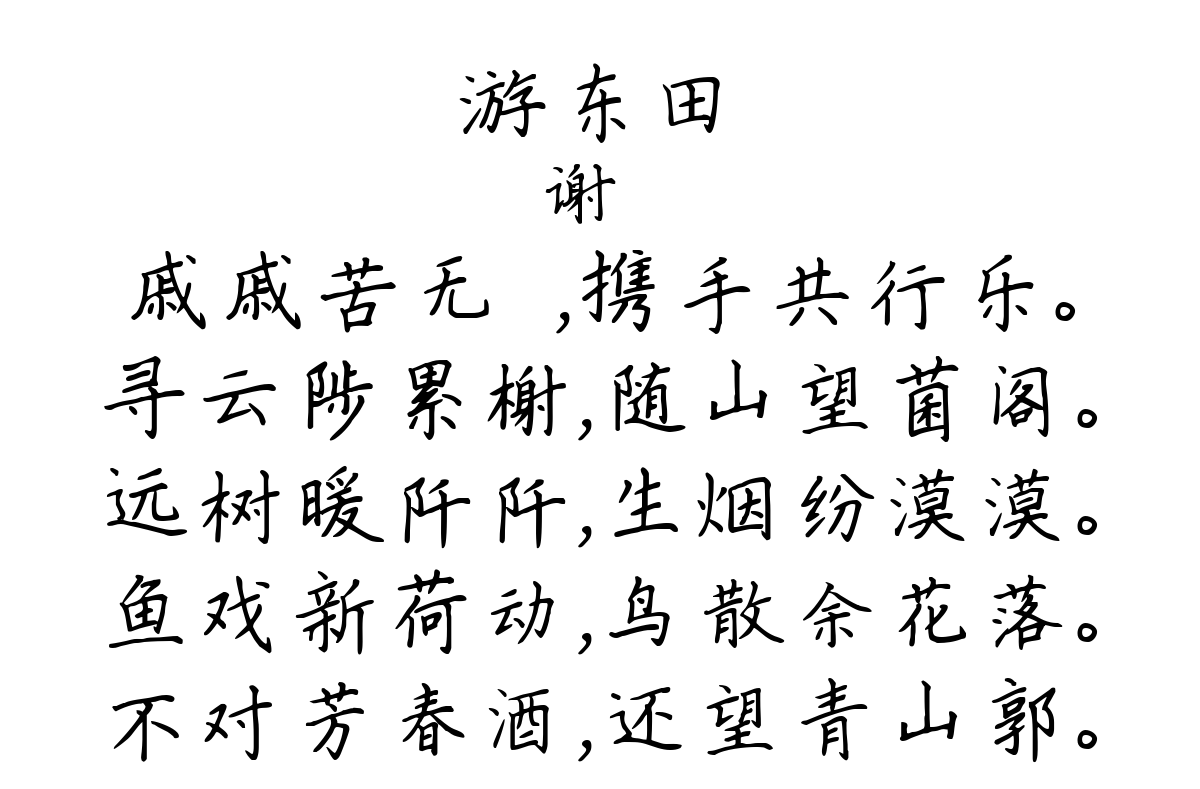 游东田
谢
戚戚苦无 ,携手共行乐。
寻云陟累榭,随山望菌阁。
远树暖阡阡,生烟纷漠漠。
鱼戏新荷动,鸟散余花落。
不对芳春酒,还望青山郭。